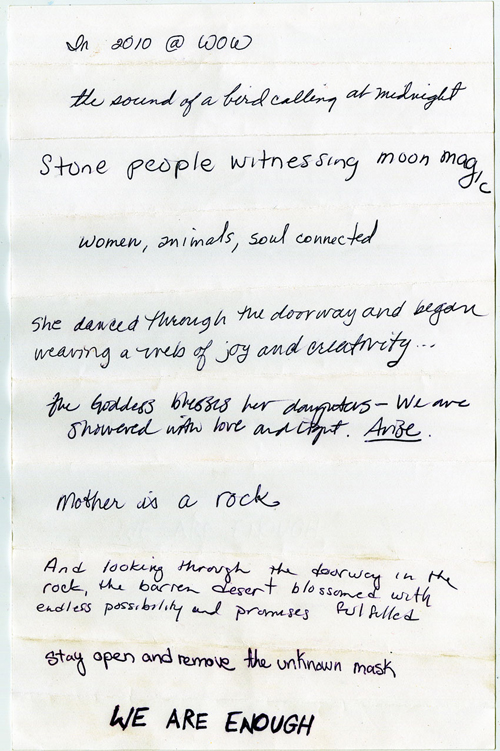 In 2010 @ WOW
the sound of a bird calling at midnight
Stone people witnessing moon magic
women, animals, soul connected
She danced through the doorway and began
weaving a web of joy and creativity...
The Goddess blesses her daughters – We are
showered with love and light. Arise.
Mother is a rock
And looking through the doorway in the
rock, the barren desert blossomed with
endless possibility and promises fulfilled
Stay open and remove the unknown mask
WE ARE ENOUGH